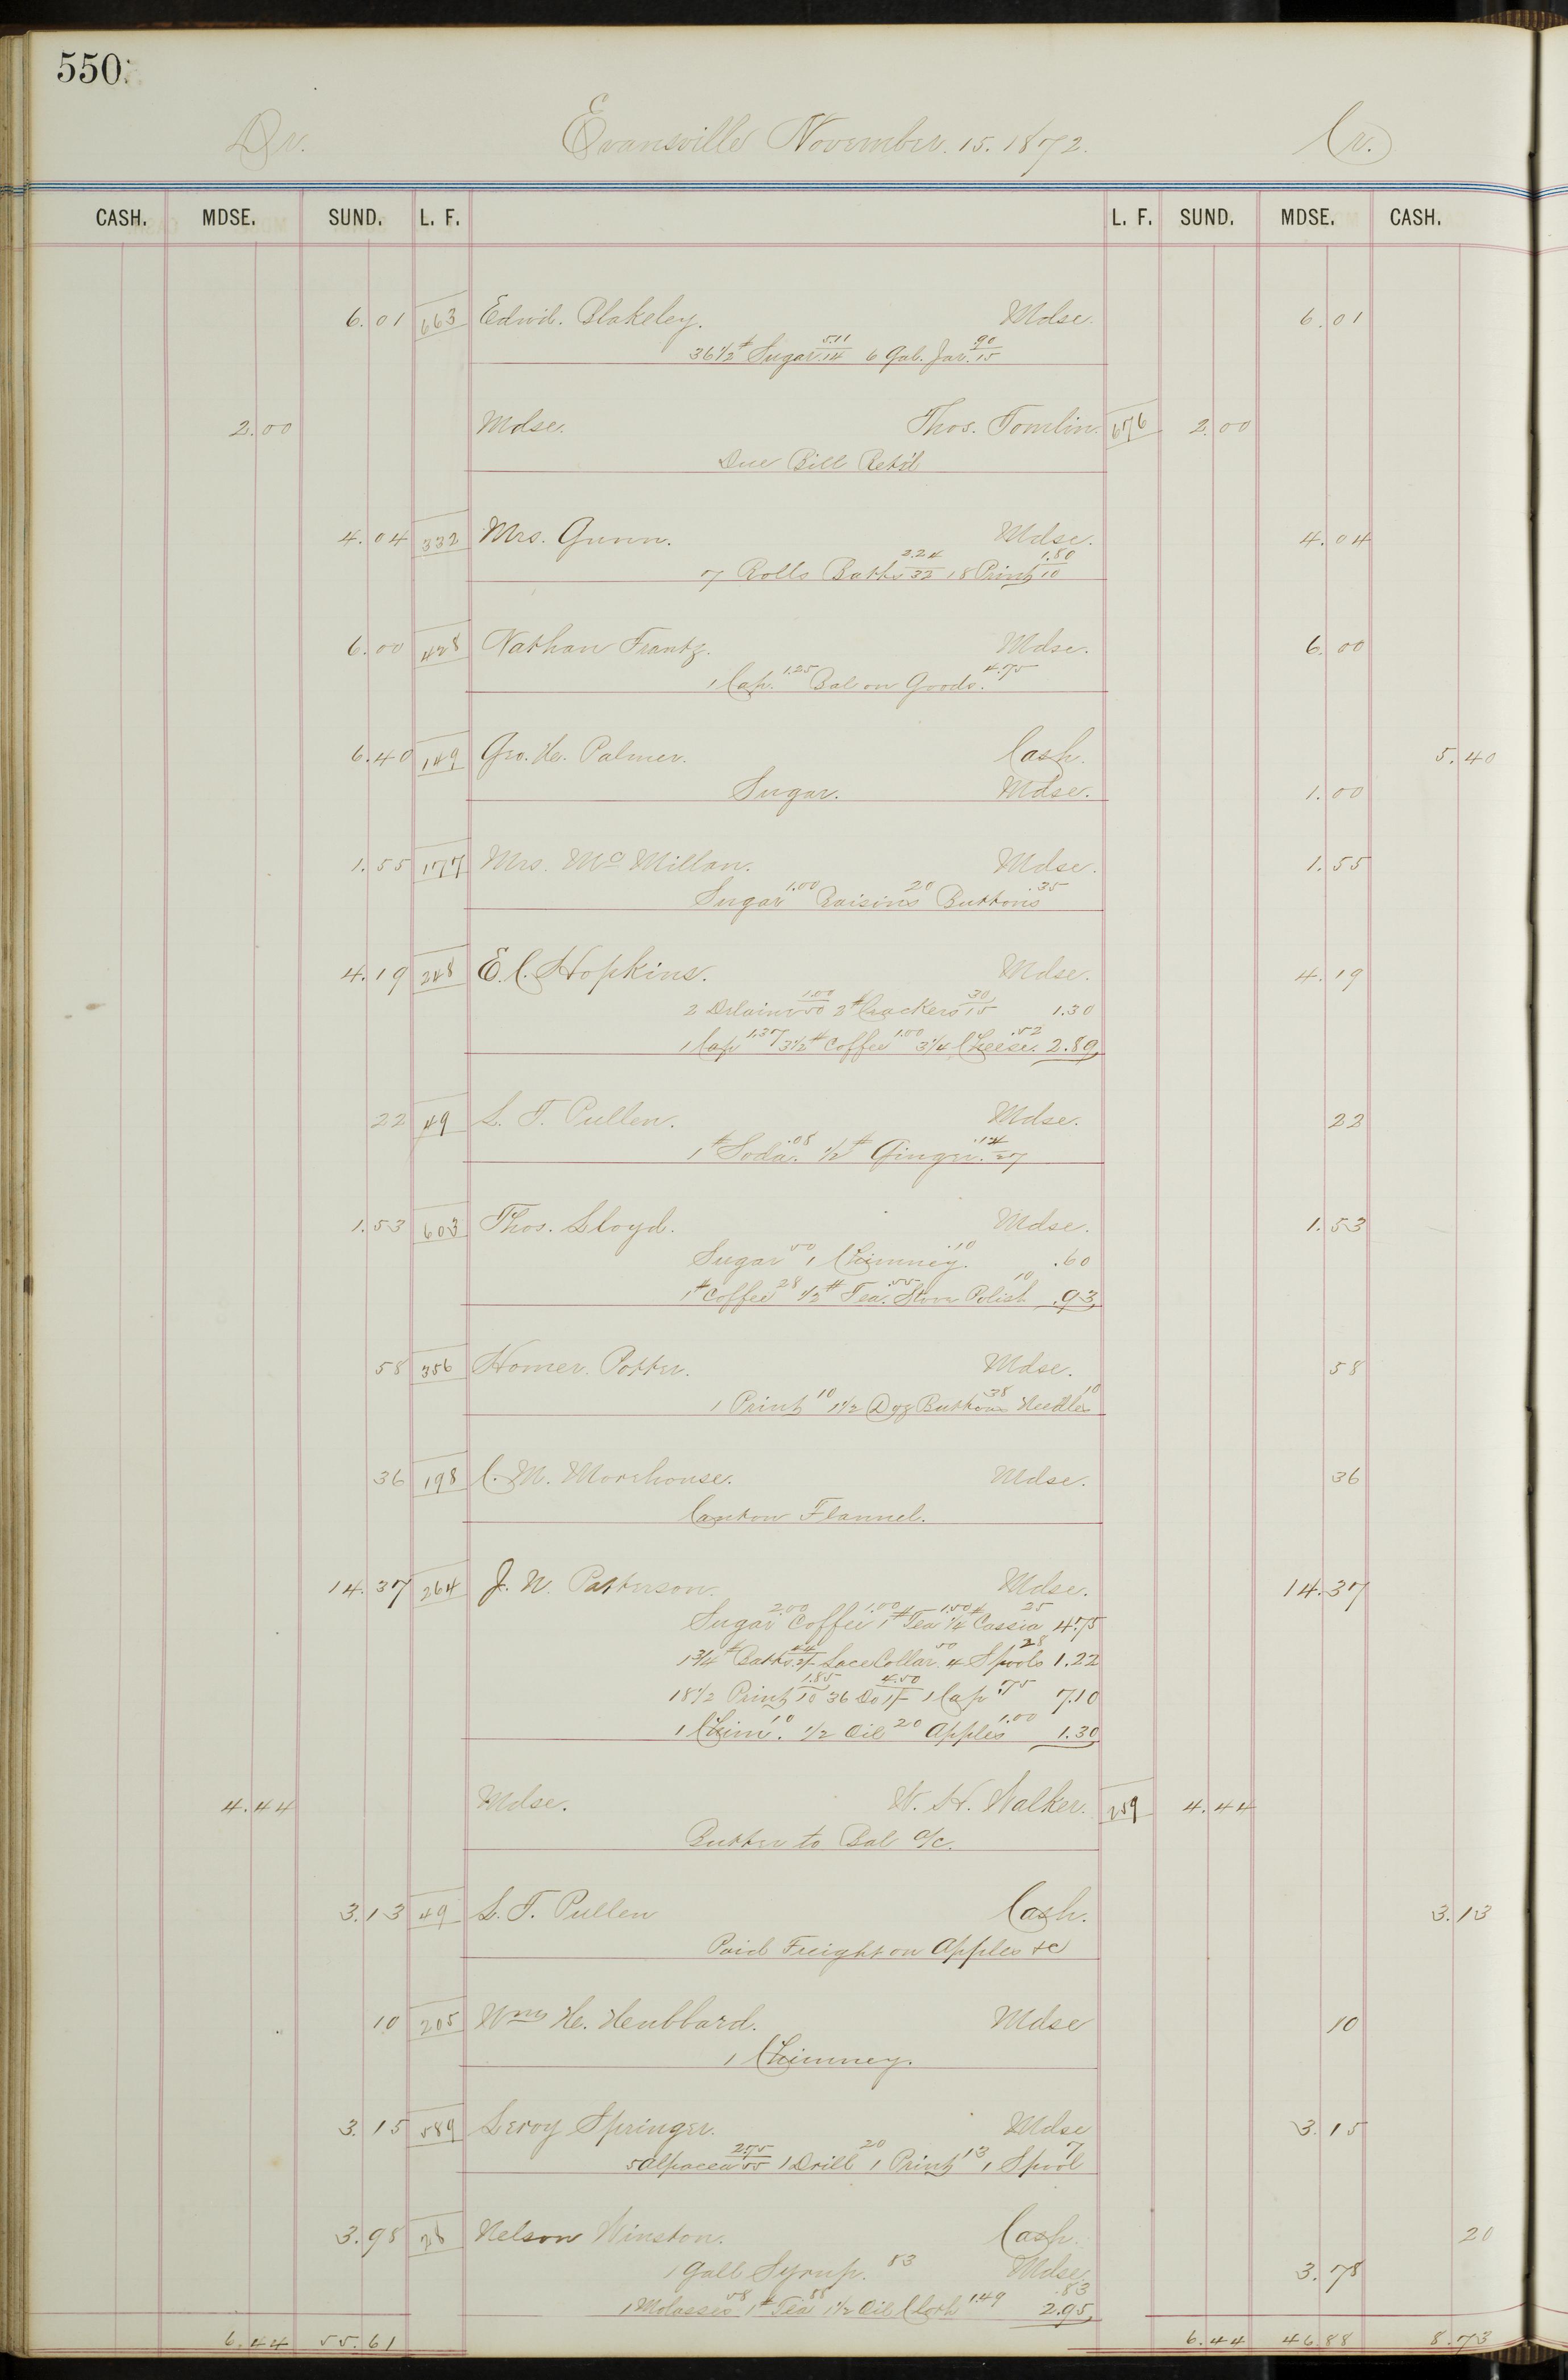 550
Dr. Evansville November. 15. 1872. Cr.
CASH. MDSE. SUND. L. F. L. F. SUND. MDSE. CASH.
6.01 663 Edwd. Blakeley. Mdse. 6.01
36 1/2 # Sugar 5.11/14 6 Gal. Jar. 90/15
2.00 Mdse. Thos. Tomlin. 676 2.00
Due Bill Retd
4.04 332 Mrs. Gunn. Mdse. 4.04
7 Rolls Batts 2.24/32 18 Print 1.80/10
6.00 428 Nathan Frantz. Mdse. 6.00
1 Cap. 1.25 Bal on Goods. 4.75
6.40 149 Geo. H. Palmer. Cash. 5.40
Sugar. Mdse. 1.00
1.55 177 Mrs. Mc Millan. Mdse. 1.55
Sugar 1.00 Raisins 20 Buttons .35
4.19 248 E. C. Hopkins. Mdse. 4.19
2 Delaine 1.00/50 2# Crackers 30/15 1.30
1 Cap 1.37 3 1/2 # Coffee 1.00 3 1/4 Cheese. .52 2.89
22 49 L. T. Pullen. Mdse. 22
1# Soda. .08 1/2 # Ginger. .14/27
1.53 603 Thos. Lloyd. Mdse. 1.53
Sugar 50 1 Chimney. .10 .60
1# Coffee 28 1/2 # Tea. .55 Stove Polish 10 .93
58 356 Homer. Potter. Mdse. 58
1 Print 10 1 1/2 Doz Buttons 38 Needles 10
36 198 C. M. Morehouse. Mdse. 36
Canton Flannel.
14.37 264 J. W. Patterson. Mdse. 14.37
Sugar 2.00 Coffee 1.00 1# Tea 1.50 1/4 # Cassia 25 4.75
1 3/4 # Batts 44/2/- Lace Collar 50 4 Spools 28 1.22
18 1/2 Print 1.85/10 36 Do 4.50/1/- 1 Cap .75 7.10
1 Chim. 10 1/2 Oil 20 Apples 1.00 1.30
4.44 Mdse. W. H. Walker. 259 4.44
Butter to Bal a/c.
3.13 49 L. T. Pullen Cash. 3.13
Paid Freight on Apples &c
10 205 Wm H. Hubbard. Mdse 10
1 Chimney.
3.15 589 Leroy Springer. Mdse 3.15
5 Alpacca 2.75/55 1 Drill 20 1 Print 13 1 Spool 7
3.98 28 Nelson Winston. Cash. 20
1 Gall Syrup. 83 Mdse. 3.78
.83
1 Molasses 58 1# Tea 88 1 1/2 Oil Cloth 1.49 2.95
6.44 55.61 6.44 46.88 8.73